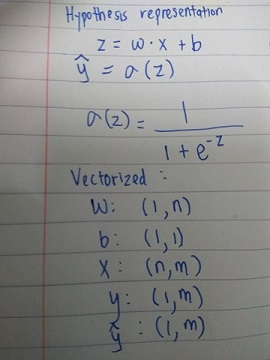 Hypothesis representation
z = w · x + b
ŷ = σ(z)
σ(z) = 1
1 + e^-z
Vectorized :
W: (1,n)
b: (1,1)
X: (n,m)
y: (1,m)
ŷ : (1,m)